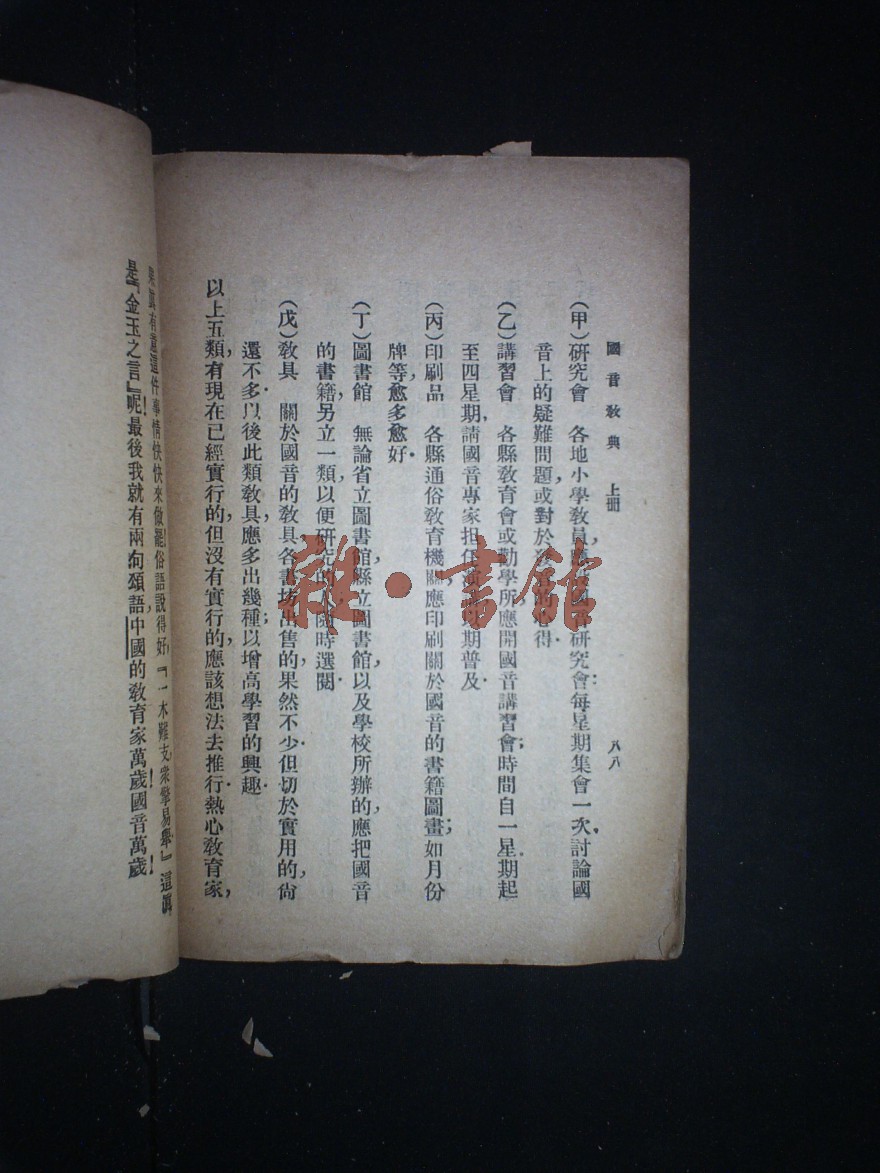 國音教典　上冊　　八八
（甲）研究會　各地小學教員，應設國音研究會；每星期集會一次，討論國
音上的疑難問題，或對於發音的心得．
（乙）講習會　各縣教育會或勸學所應開國音講習會；時間自一星期起
至四星期，請國音專家担任演講，以期普及．
（丙）印刷品　各縣通俗教育機關，應印刷關於國音的書籍圖畫；如月份
牌等，愈多愈好．
（丁）圖書館　無論省立圖書館，縣立圖書館，以及學校所辦的，應把國音
的書籍，另立一類，以便研究的人隨時選閱．
（戊）教具　關於國音的教具，各書坊出售的，果然不少．但切於實用的，尙
還不多．以後此類教具，應多出幾種，以增高學習的興趣．
以上五類，有現在已經實行的；但沒有實行的，應該想法去推行．熱心教育家，
有意這件事情，快快來做罷！俗語說得好，『一木難支，衆擎易舉，』這眞
是『金玉之言』呢！最後我就有兩句頌語，中國的教育家萬歲！國音萬歲！
雜·書館